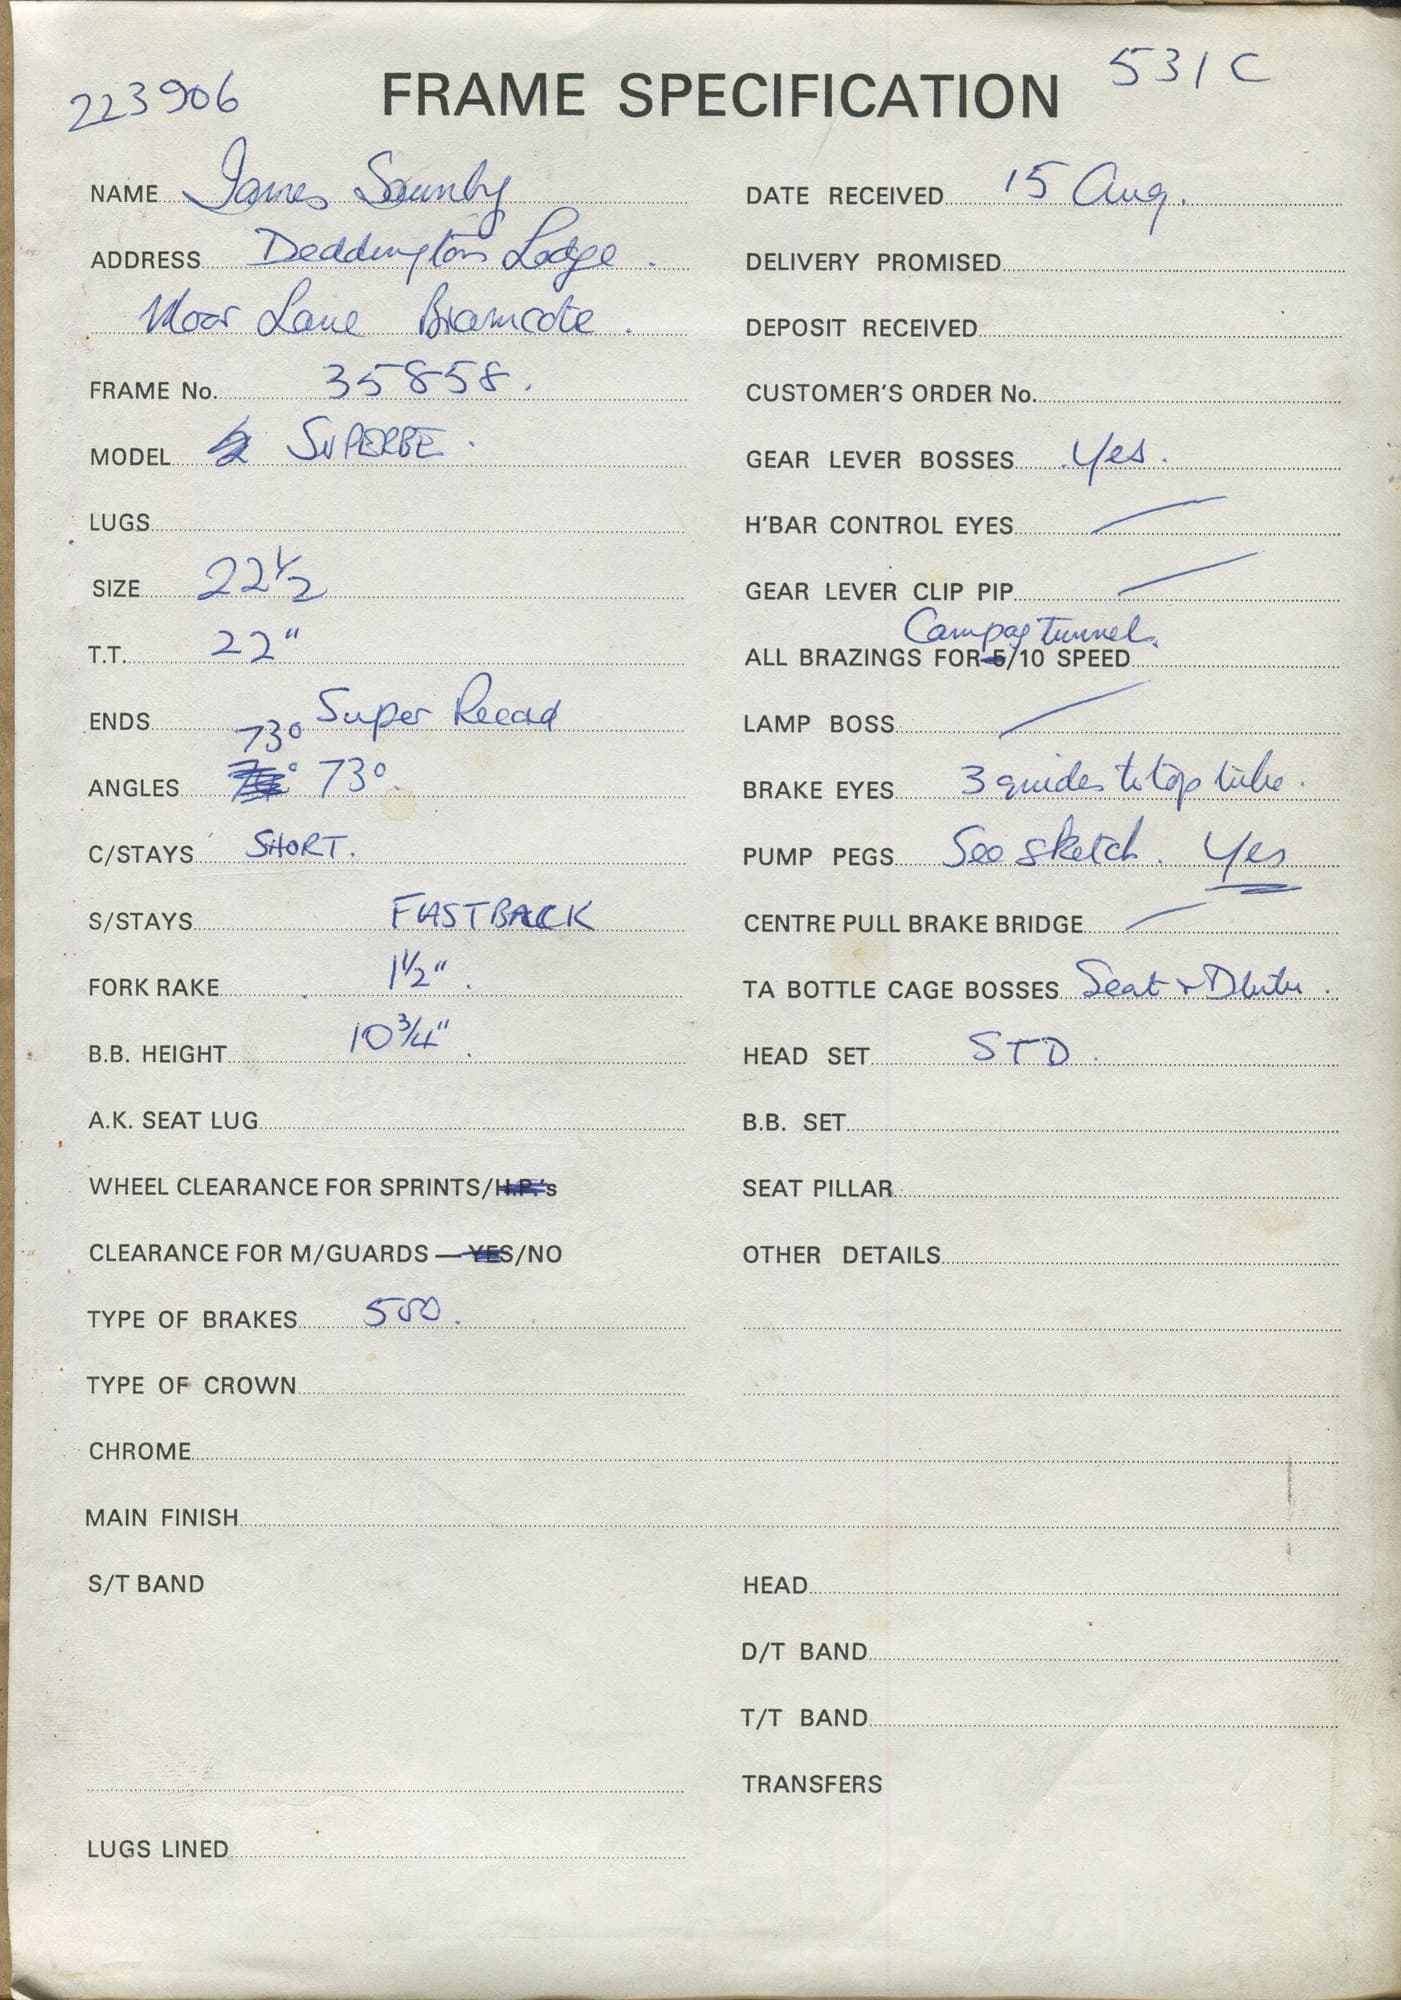 223906
FRAME SPECIFICATION
531C
NAME James Saunby
ADDRESS Deddington Lodge.
Moor Lane Bramcote.
FRAME No. 35858.
MODEL SUPERBE.
LUGS
SIZE 22 1/2
T.T. 22"
ENDS Super Record
ANGLES 73° 73°.
C/STAYS SHORT.
S/STAYS FASTBACK
FORK RAKE 1 1/2".
B.B. HEIGHT 10 3/4".
A.K. SEAT LUG
WHEEL CLEARANCE FOR SPRINTS/H.P.'s
CLEARANCE FOR M/GUARDS — YES/NO
TYPE OF BRAKES 500.
TYPE OF CROWN
CHROME
MAIN FINISH
S/T BAND
LUGS LINED
DATE RECEIVED 15 Aug.
DELIVERY PROMISED
DEPOSIT RECEIVED
CUSTOMER'S ORDER No.
GEAR LEVER BOSSES Yes.
H'BAR CONTROL EYES
GEAR LEVER CLIP PIP
Campag Tunnel.
ALL BRAZINGS FOR 5/10 SPEED
LAMP BOSS
BRAKE EYES 3 guides to top tube.
PUMP PEGS See sketch. Yes
CENTRE PULL BRAKE BRIDGE
TA BOTTLE CAGE BOSSES Seat + D
HEAD SET STD.
B.B. SET
SEAT PILLAR
OTHER DETAILS
HEAD
D/T BAND
T/T BAND
TRANSFERS